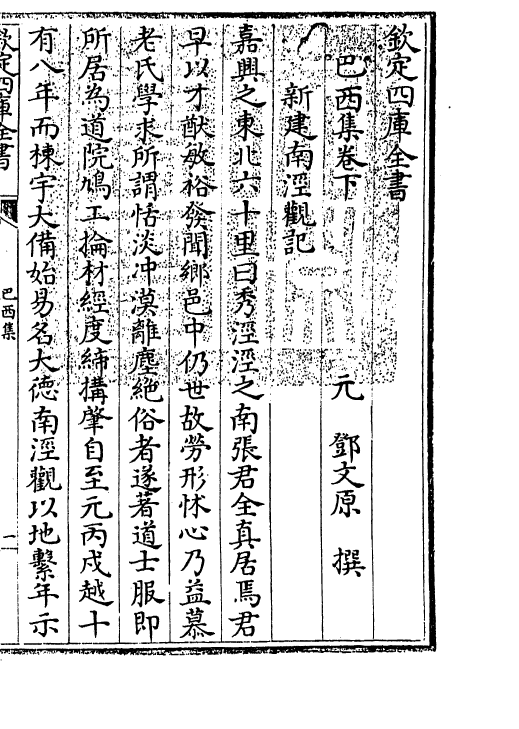 欽定四庫全書
巴西集卷下
元 鄧文原 撰
新建南涇觀記
嘉興之東北六十里曰秀涇涇之南張君全真居焉君
早以才猷敏裕發聞鄉邑中仍世故勞形怵心乃益慕
老氏學求所謂恬淡沖漠離塵絶俗者遂著道士服即
所居為道院鳩工掄材經度締搆肇自至元丙戍越十
有八年而棟宇大備始易名大德南涇觀以地繫年示
欽定四庫全書
巴西集
一